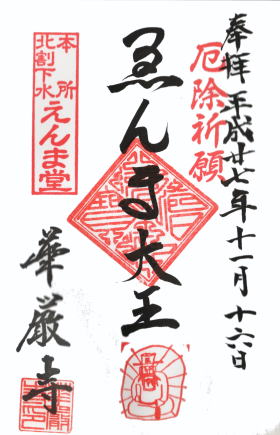 奉拝 平成廿七年十一月十六日
厄除祈願
ゑんま大王
本所
北割下水
えんま堂
華厳寺